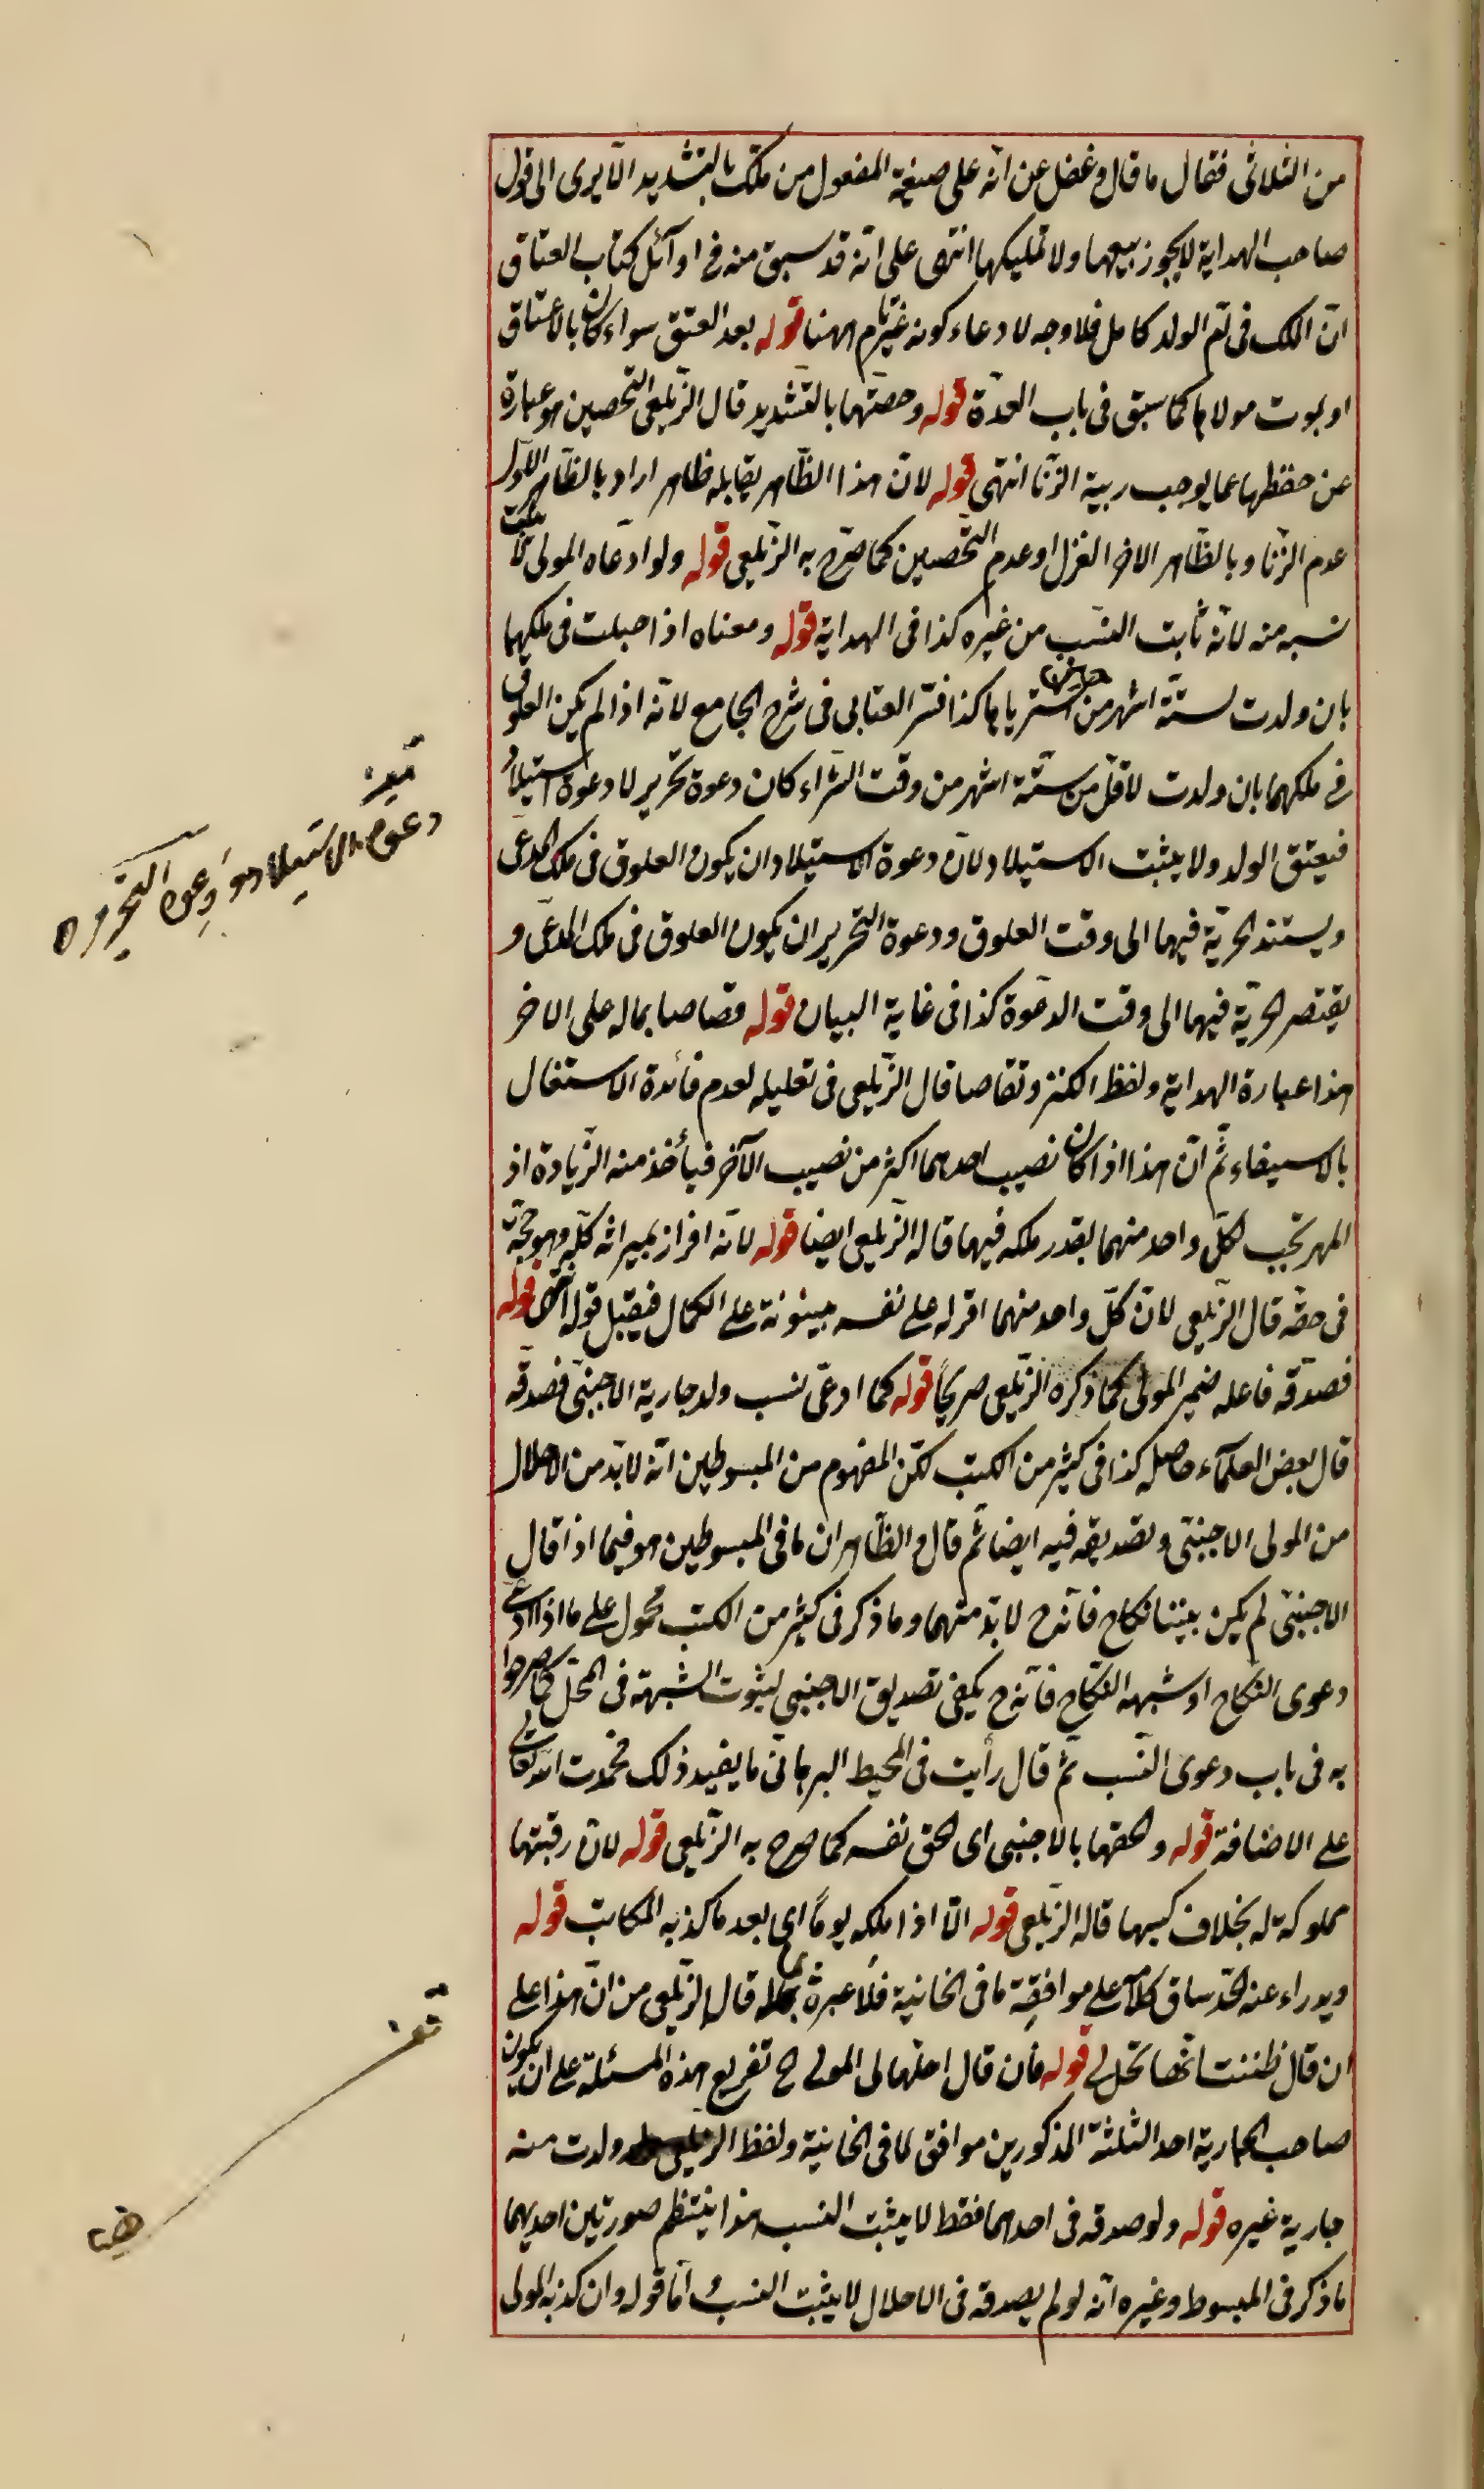 من الثلاثى فقال ما قال وغفل عن انه على صيغة المفعول من ملّك بالتشديد الّا يرى الى قول
صاحب الهداية لا يجوز بيعها ولا تمليكها انتهى على انّه قد سبق منه فى اوآئل كتاب العتاق
انّ الملك فى امّ الولد كامل فلا وجه لادعاء كونه غير تام ههنا قوله بعد العتق سواء كان بالاعتاق
او بموت مولاها كما سبق فى باب العدّة قوله وحصّنها بالتشديد قال الزّيلعى التّحصين هو عبارة
عن حفظها عما يوجب ريبة الزّنا انتهى قوله لانّ هذا الظّاهر يقابله ظاهر اراد بالظّاهر الاوّل
عدم الزّنا وبالظّاهر الاخر العزل او عدم التّحصين كما صرّح به الزّيلعى قوله ولو ادعاه المولى لا يثبت
نسبه منه لانّه ثابت النّسب من غيره كذا فى الهداية قوله ومعناه اذا حبلت فى ملكهما
بان ولدت لستّة اشهر من اشترياها كذا فسّر العتابى فى شرح الجامع لانّه اذا لم يكن العلوق
فى ملكهما بان ولدت لاقلّ من ستّة اشهر من وقت الشّراء كان دعوة تحرير لا دعوة استيلاد
فيعتق الولد ولا يثبت الاستيلاد لانّ دعوة الاستيلاد ان يكون العلوق فى ملك المدعى
ويستند الحريّة فيهما الى وقت العلوق ودعوة التّحرير ان يكون العلوق فى ملك المدعى و
يقتصر الحريّة فيهما الى وقت الدعوة كذا فى غاية البيان قوله قصاصا بماله على الاخر
هذا عبارة الهداية ولفظ الكنز وتقاصا قال الزّيلعى فى تعليله لعدم فائدة الاشتغال
بالاستيفاء ثمّ انّ هذا اذا كان نصيب احدهما اكثر من نصيب الآخر فيأخذ منه الزّيادة اذ
المهر تجب لكلّ واحد منهما بقدر ملكه فيها قاله الزّيلعى ايضا قوله لانّه اقراز بميراثه كلّه وهو حجّة
فى حقّه قال الزّيلعى لانّ كلّ واحد منهما اقر له على نفسه ببنوّته على الكمال فيقبل قوله انتهى قوله
فصدّقه فاعله ضمير المولى كما ذكره الزّيلعى صريحًا قوله كما ادعى نسب ولد جارية الاجنبى فصدقه
قال بعض العلمآء حاصله كذا فى كثير من الكتب لكن المفهوم من المبسوطين انّه لا بدّ من الاحلال
من المولى الاجنبىّ وتصديقه فيه ايضا ثمّ قال والظّاهر ان ما فى المبسوطين هو فيما اذا قال
الاجنبىّ لم يكن بيننا نكاح فانّه ح لا بدّ منهما وما ذكر فى كثير من الكتب محمول على ما اذا ادعى
دعوى النّكاح او شبهه النّكاح فانّه ح يكفى تصديق الاجنبى لثبوت الشبهة فى المحل كما صرحوا
به فى باب دعوى النّسب ثمّ قال رأيت فى المحيط البرهانى ما يفيد ذلك فحمدت الله تعالى
على الاضافة قوله ولحقها بالاجنبى اى لحق نفسه كما صرح به الزّيلعى قوله لانّ رقبتها
مملوكة له بخلاف كسبها قاله الزّيلعى قوله الّا اذا ملكه يومًا اى بعد ما كذبه المكاتب قوله
ويدراء عنه الحد ساق كلامه على موافقة ما فى الخانية فلا عبرة بما قال الزّيلعى من انّ هذا على
ان قال ظننت انّها تحل لى قوله فان قال احلّها لى المولى ح تفريع هذه المسئلة على ان يكون
صاحب الجارية احد الثلثة المذكورين موافق لما فى الخانية ولفظ الزيلعى ولدت منه
جارية غيره قوله ولو صدقه فى احدهما فقط لا يثبت النسب هذا ينتظم صورتين احديهما
ما ذكر فى المبسوط وغيره انّه لو لم يصدقه فى الاحلال لا يثبت النسب امّا قوله وان كذبه المولى
دعوة الاستيلاد ودعوة التحرير